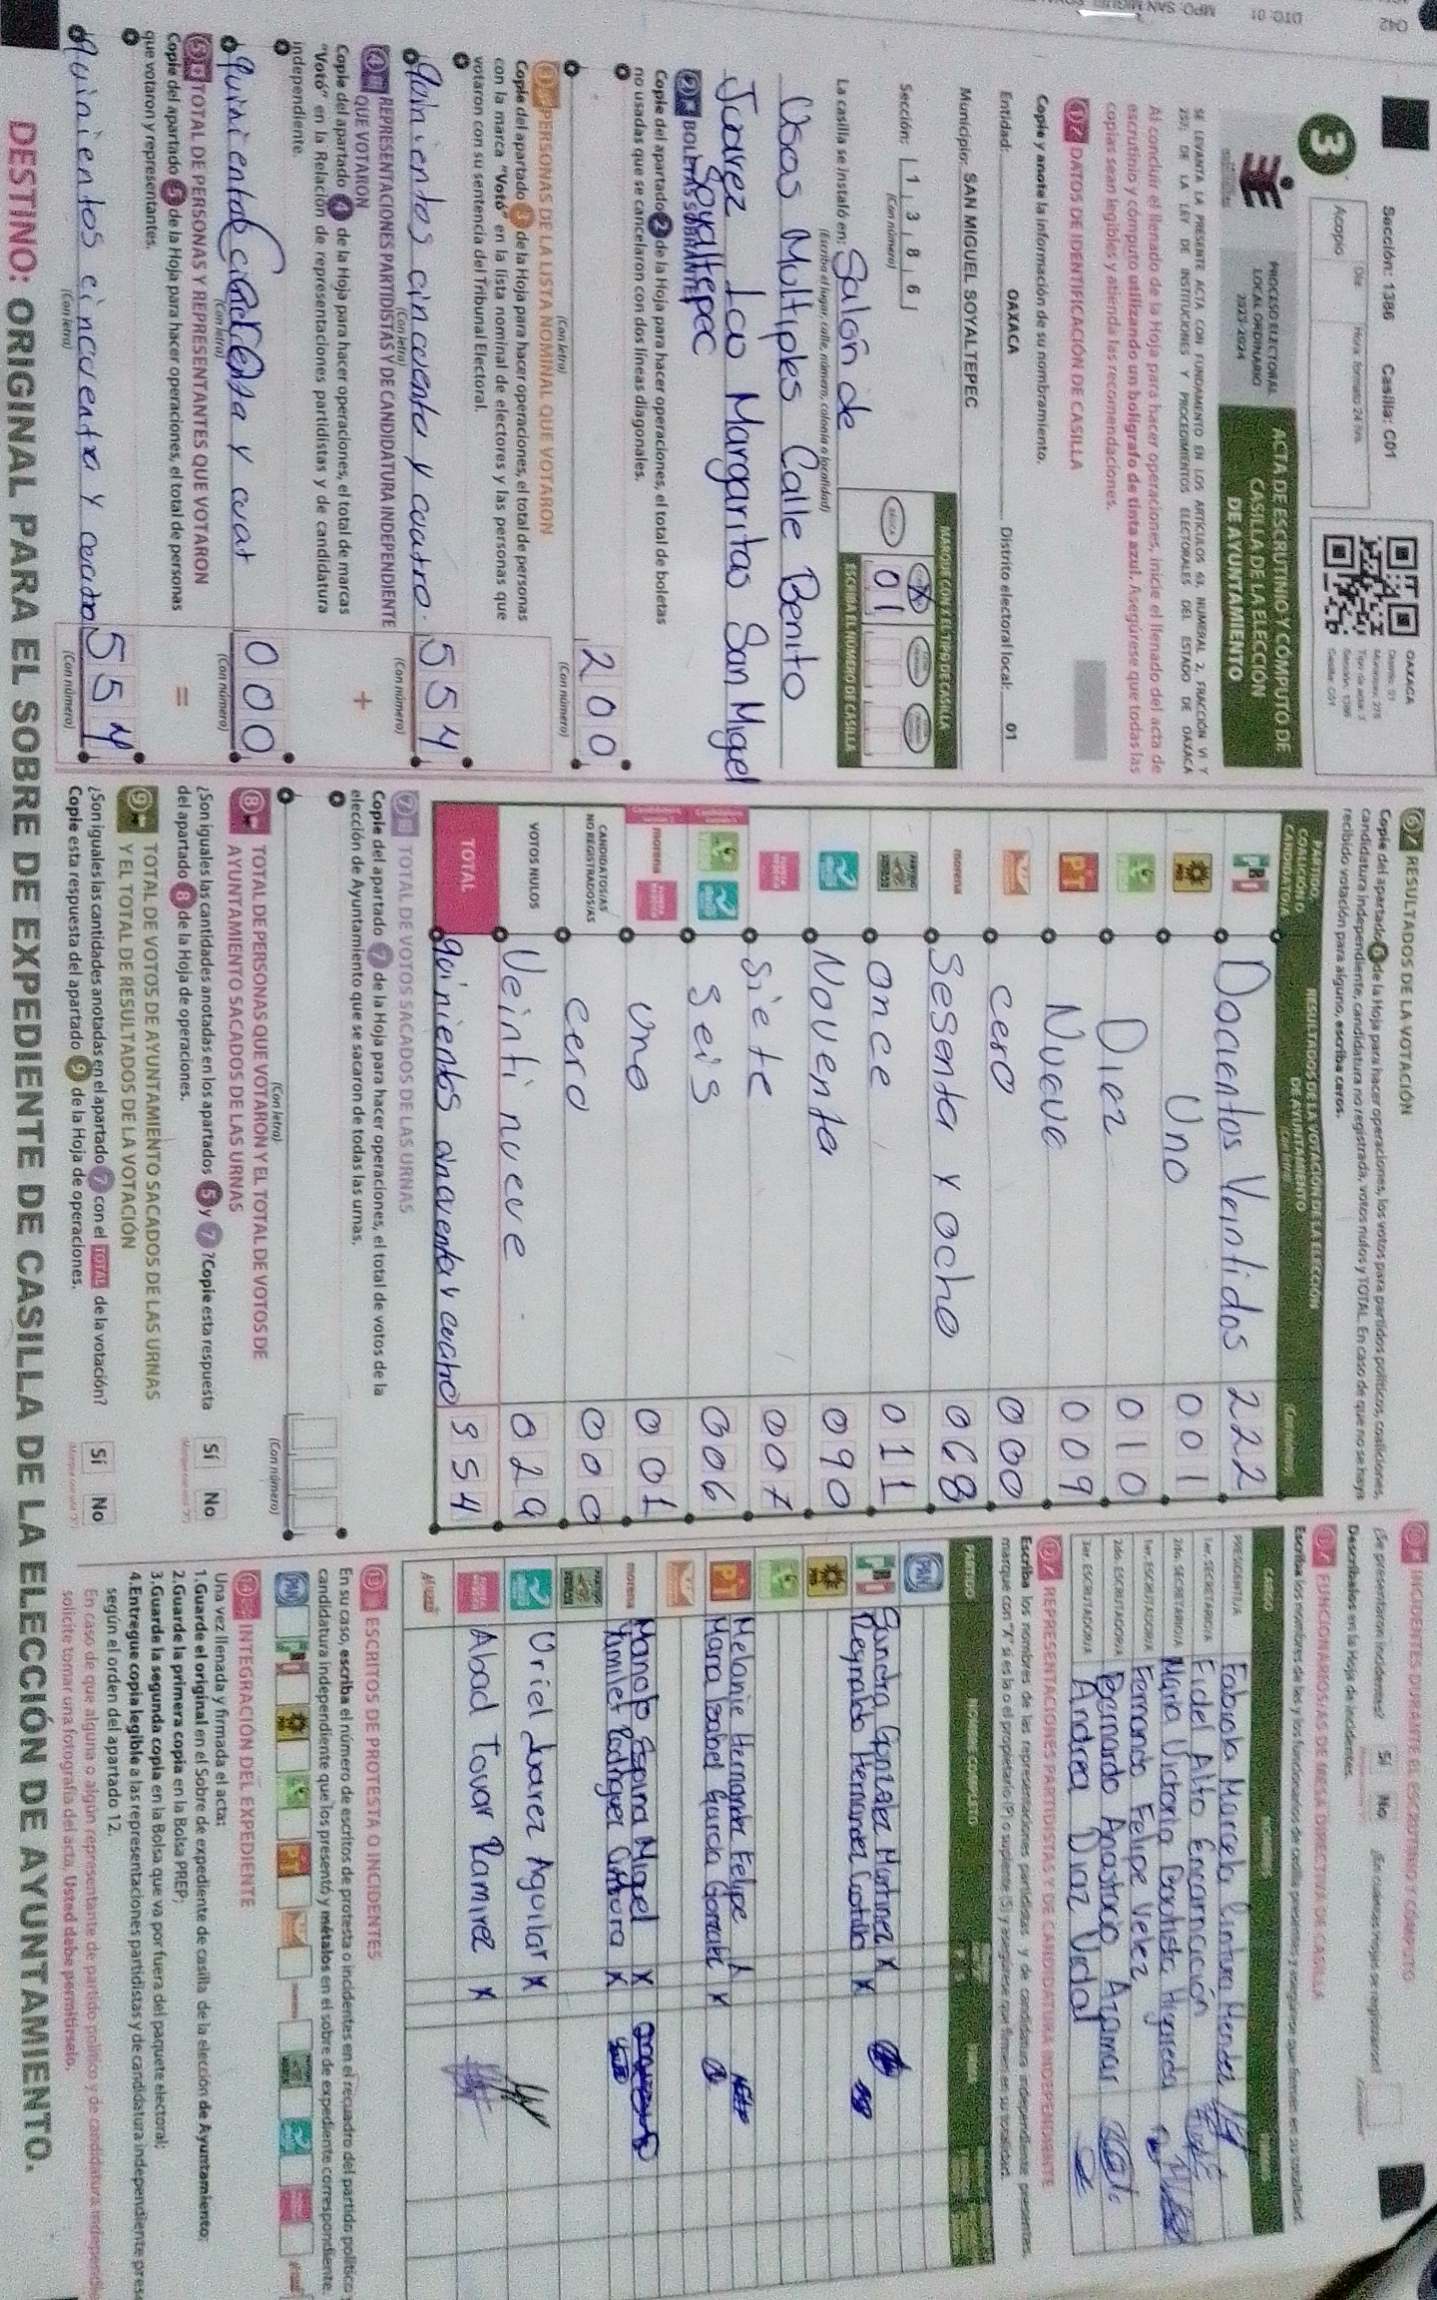 Sección: 1386 Casilla: C01
OAXACA
3
Acopio
Día
Hora: formato 24 hrs.
PROCESO ELECTORAL
LOCAL ORDINARIO
2023-2024
ACTA DE ESCRUTINIO Y CÓMPUTO DE
CASILLA DE LA ELECCIÓN
DE AYUNTAMIENTO
SE LEVANTA LA PRESENTE ACTA CON FUNDAMENTO EN LOS ARTÍCULOS 63, NUMERAL 2, FRACCIÓN VI Y
257, DE LA LEY DE INSTITUCIONES Y PROCEDIMIENTOS ELECTORALES DEL ESTADO DE OAXACA
Al concluir el llenado de la Hoja para hacer operaciones, inicie el llenado del acta de
escrutinio y cómputo utilizando un bolígrafo de tinta azul. Asegúrese que todas las
copias sean legibles y atienda las recomendaciones.
1 DATOS DE IDENTIFICACIÓN DE CASILLA
Copie y anote la información de su nombramiento.
Entidad: OAXACA Distrito electoral local: 01
Municipio: SAN MIGUEL SOYALTEPEC
Sección: 1 3 8 6
(Con número)
MARQUE CON X EL TIPO DE CASILLA
X
01
ESCRIBA EL NÚMERO DE CASILLA
La casilla se instaló en: Salón de
(Escriba el lugar, calle, número, colonia o localidad)
Usos Multiples Calle Benito
Juarez Las Margaritas San Miguel
Soyaltepec
2 BOLETAS SOBRANTES
Copie del apartado 2 de la Hoja para hacer operaciones, el total de boletas
no usadas que se cancelaron con dos líneas diagonales.
200
(Con letra) (Con número)
3 PERSONAS DE LA LISTA NOMINAL QUE VOTARON
Copie del apartado 3 de la Hoja para hacer operaciones, el total de personas
con la marca "Votó" en la lista nominal de electores y las personas que
votaron con su sentencia del Tribunal Electoral.
quinientos cincuenta y cuatro. 554
(Con letra) (Con número)
4 REPRESENTACIONES PARTIDISTAS Y DE CANDIDATURA INDEPENDIENTE
QUE VOTARON
Copie del apartado 4 de la Hoja para hacer operaciones, el total de marcas
"Votó" en la Relación de representaciones partidistas y de candidatura
independiente.
+
000
(Con letra) (Con número)
5 TOTAL DE PERSONAS Y REPRESENTANTES QUE VOTARON
Copie del apartado 5 de la Hoja para hacer operaciones, el total de personas
que votaron y representantes.
=
quinientos cincuenta y cuatro 554
(Con letra) (Con número)
6 RESULTADOS DE LA VOTACIÓN
Copie del apartado 6 de la Hoja para hacer operaciones, los votos para partidos políticos, coaliciones,
candidatura independiente, candidatura no registrada, votos nulos y TOTAL. En caso de que no se haya
recibido votación para alguno, escriba ceros.
PARTIDO, COALICIÓN O CANDIDATO/A
RESULTADOS DE LA VOTACIÓN DE LA ELECCIÓN
DE AYUNTAMIENTO
(Con letra) (Con número)
PRI Docientos Veintidos 222
PRD Uno 001
Diez 010
PT Nueve 009
cero 000
morena Sesenta y ocho 068
once 011
Noventa 090
siete 007
seis 006
morena uno 001
CANDIDATOS/AS
NO REGISTRADOS/AS cero 000
VOTOS NULOS Veinti nueve 029
TOTAL quinientos cincuenta y cuatro 554
7 TOTAL DE VOTOS SACADOS DE LAS URNAS
Copie del apartado 7 de la Hoja para hacer operaciones, el total de votos de la
elección de Ayuntamiento que se sacaron de todas las urnas.
(Con letra) (Con número)
8 TOTAL DE PERSONAS QUE VOTARON Y EL TOTAL DE VOTOS DE
AYUNTAMIENTO SACADOS DE LAS URNAS
¿Son iguales las cantidades anotadas en los apartados 5 y 7 ?Copie esta respuesta
del apartado 8 de la Hoja de operaciones.
Sí No
9 TOTAL DE VOTOS DE AYUNTAMIENTO SACADOS DE LAS URNAS
Y EL TOTAL DE RESULTADOS DE LA VOTACIÓN
¿Son iguales las cantidades anotadas en el apartado 7 con el TOTAL de la votación?
Copie esta respuesta del apartado 9 de la Hoja de operaciones.
Sí No
10 INCIDENTES DURANTE EL ESCRUTINIO Y CÓMPUTO
¿Se presentaron incidentes? Sí No
Descríbalos en la Hoja de incidentes.
11 FUNCIONARIOS/AS DE MESA DIRECTIVA DE CASILLA
Escriba los nombres de las y los funcionarios de casilla presentes y asegúrese que firmen en su totalidad.
CARGO NOMBRES FIRMAS
PRESIDENTE/A Fabiola Marcela Cintura Mendez
1er. SECRETARIO/A Fidel Alto Encarnación
2do. SECRETARIO/A Maria Victoria Bautista Higareda
1er. ESCRUTADOR/A Fernando Felipe Velez
2do. ESCRUTADOR/A Bernardo Anastacio Azamar
3er. ESCRUTADOR/A Andrea Diaz Vidal
12 REPRESENTACIONES PARTIDISTAS Y DE CANDIDATURA INDEPENDIENTE
Escriba los nombres de las representaciones partidistas y de candidatura independiente presentes,
marque con "X" si es la o el propietario (P) o suplente (S) y asegúrese que firmen en su totalidad.
PARTIDO NOMBRE COMPLETO FIRMA
PAN
PRI Sandra Gonzalez Martinez X
Reynaldo Hernandez Castillo X
PRD
PT Melanie Hernandez Felipe X
Mara Isabel Garcia Gonzalez X
morena Manolo Espina Miguel X
Yamilet Rodriguez Cintura X
Uriel Juarez Aguilar X
Abad Tovar Ramirez X
13 ESCRITOS DE PROTESTA O INCIDENTES
En su caso, escriba el número de escritos de protesta o incidentes en el recuadro del partido político
candidatura independiente que los presentó y métalos en el sobre de expediente correspondiente.
14 INTEGRACIÓN DEL EXPEDIENTE
Una vez llenada y firmada el acta:
1.Guarde el original en el Sobre de expediente de casilla de la elección de Ayuntamiento;
2.Guarde la primera copia en la Bolsa PREP;
3.Guarde la segunda copia en la Bolsa que va por fuera del paquete electoral;
4.Entregue copia legible a las representaciones partidistas y de candidatura independiente pres
según el orden del apartado 12.
En caso de que alguna o algún representante de partido político y de candidatura independie
solicite tomar una fotografía del acta. Usted debe permitírselo.
DESTINO: ORIGINAL PARA EL SOBRE DE EXPEDIENTE DE CASILLA DE LA ELECCIÓN DE AYUNTAMIENTO.